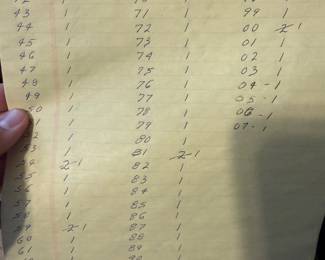 43 1 71 1 99 1
44 1 72 1 00 2-1
45 1 73 1 01 1
46 1 74 1 02 1
47 1 75 1 03 1
48 1 76 1 04-1
49 1 77 1 05-1
50 1 78 1 06-1
79 1 07-1
52 1 80 1
53 1 81 2-1
54 2-1 82 1
55 1 83 1
56 1 84 1
57 1 85 1
58 1 86 1
59 2-1 87 1
60 1 88 1
61 1 89 1
90